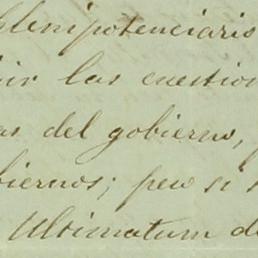 plenipotenciaris
ir las cuestion
as del gobierno,
biernos; pero si s
Ultimatum de